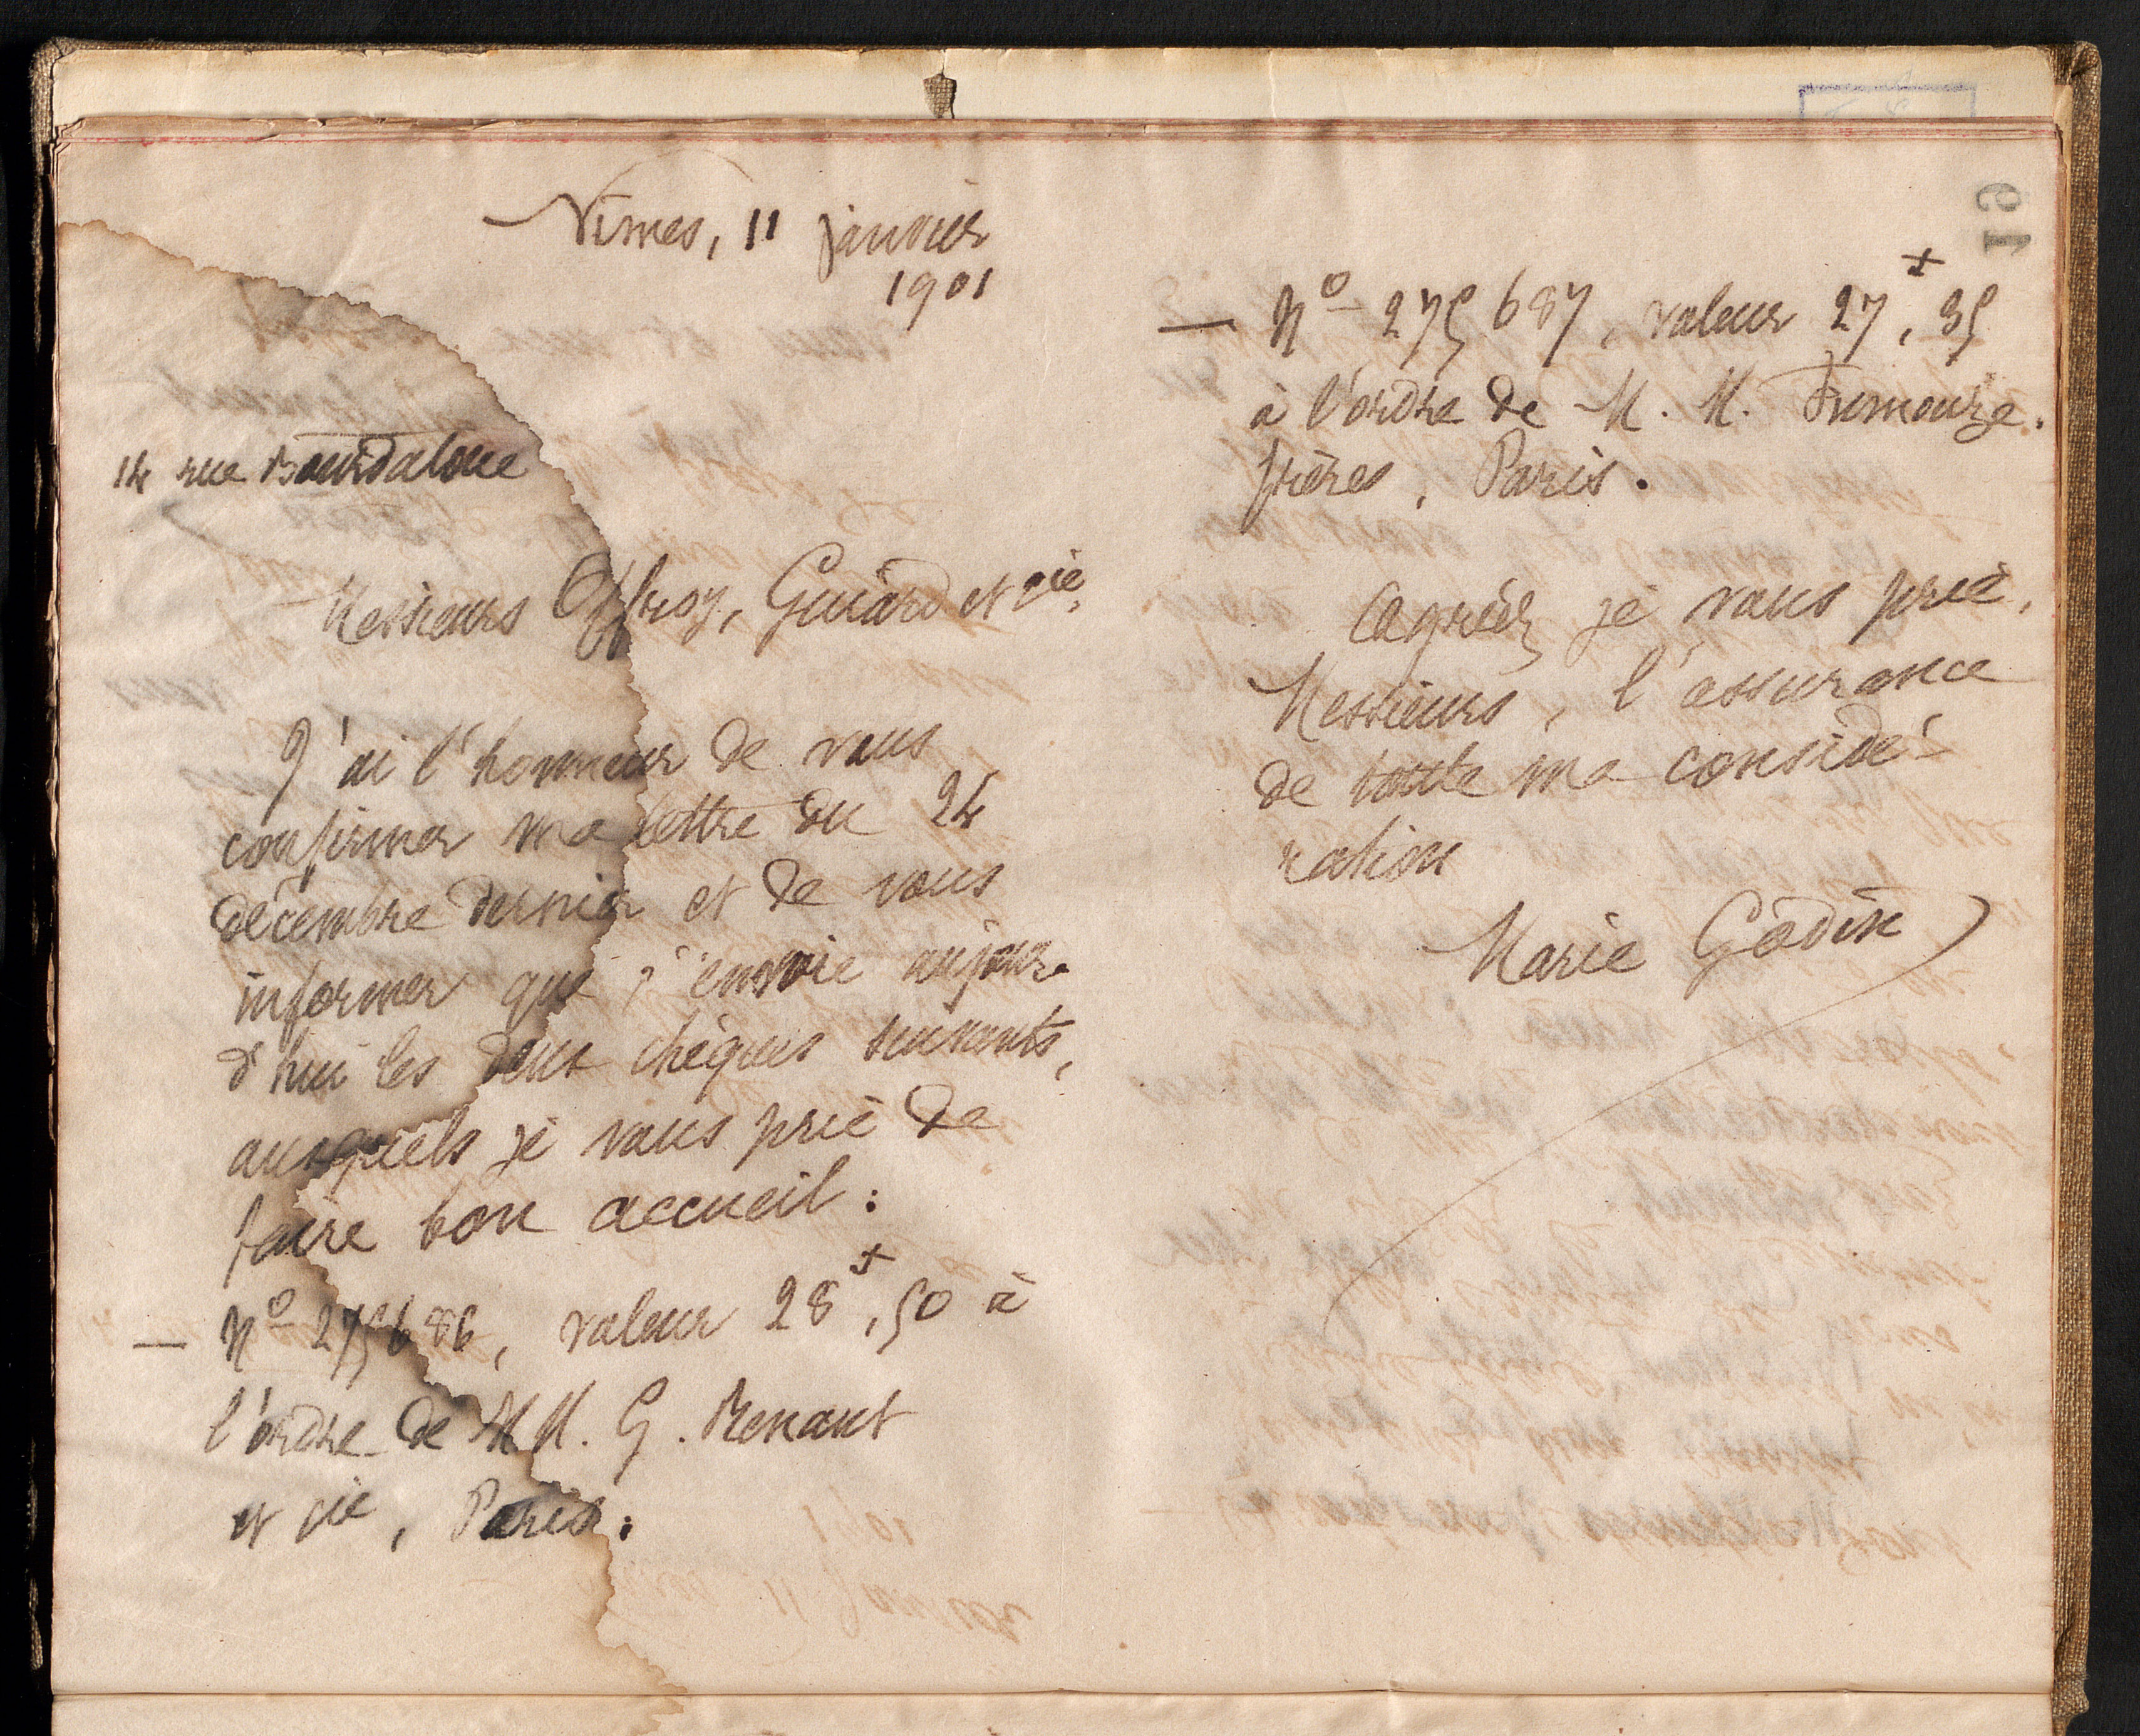 Nimes, 11 janvier
1901
14 rue Bourdaloue
Messieurs Offroy, Guiard et cie,
J'ai l'honneur de vous
confirmer ma lettre du 24
décembre dernier et de vous
informer que j'envoie aujour-
d'hui les deux chèques suivants,
auxquels je vous prie de
faire bon accueil :
— No 275686, valeur 28f,50 à
l'ordre de MM. G. Renault
et cie, Paris.
19
— No 275687, valeur 27f,35
à l'ordre de M. M. Fumouze
frères, Paris.
Agréez je vous prie,
Messieurs, l'assurance
de toute ma considé-
ration
Marie Godin